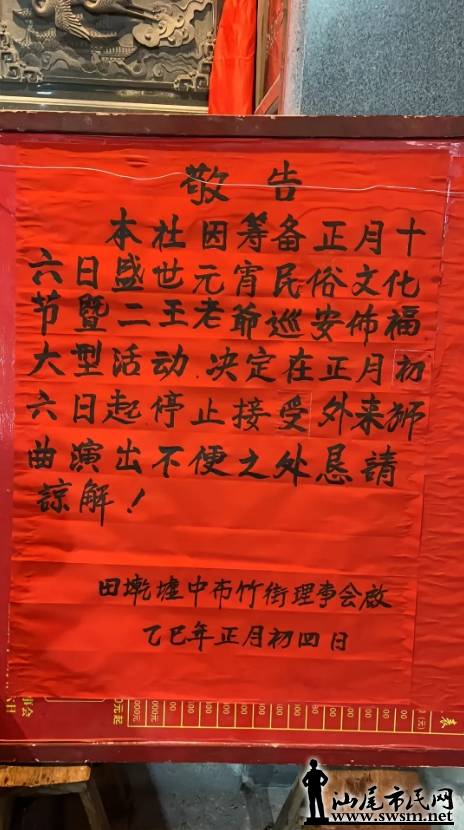 敬告
本社因筹备正月十
六日盛世元宵民俗文化
节暨二王老爷巡安佈福
大型活动.决定在正月初
六日起停止接受外来狮
曲演出不便之处恳請
諒解！
田墘墟中布竹街理事会啟
乙巳年正月初四日
汕尾市民网
www.swsm.net